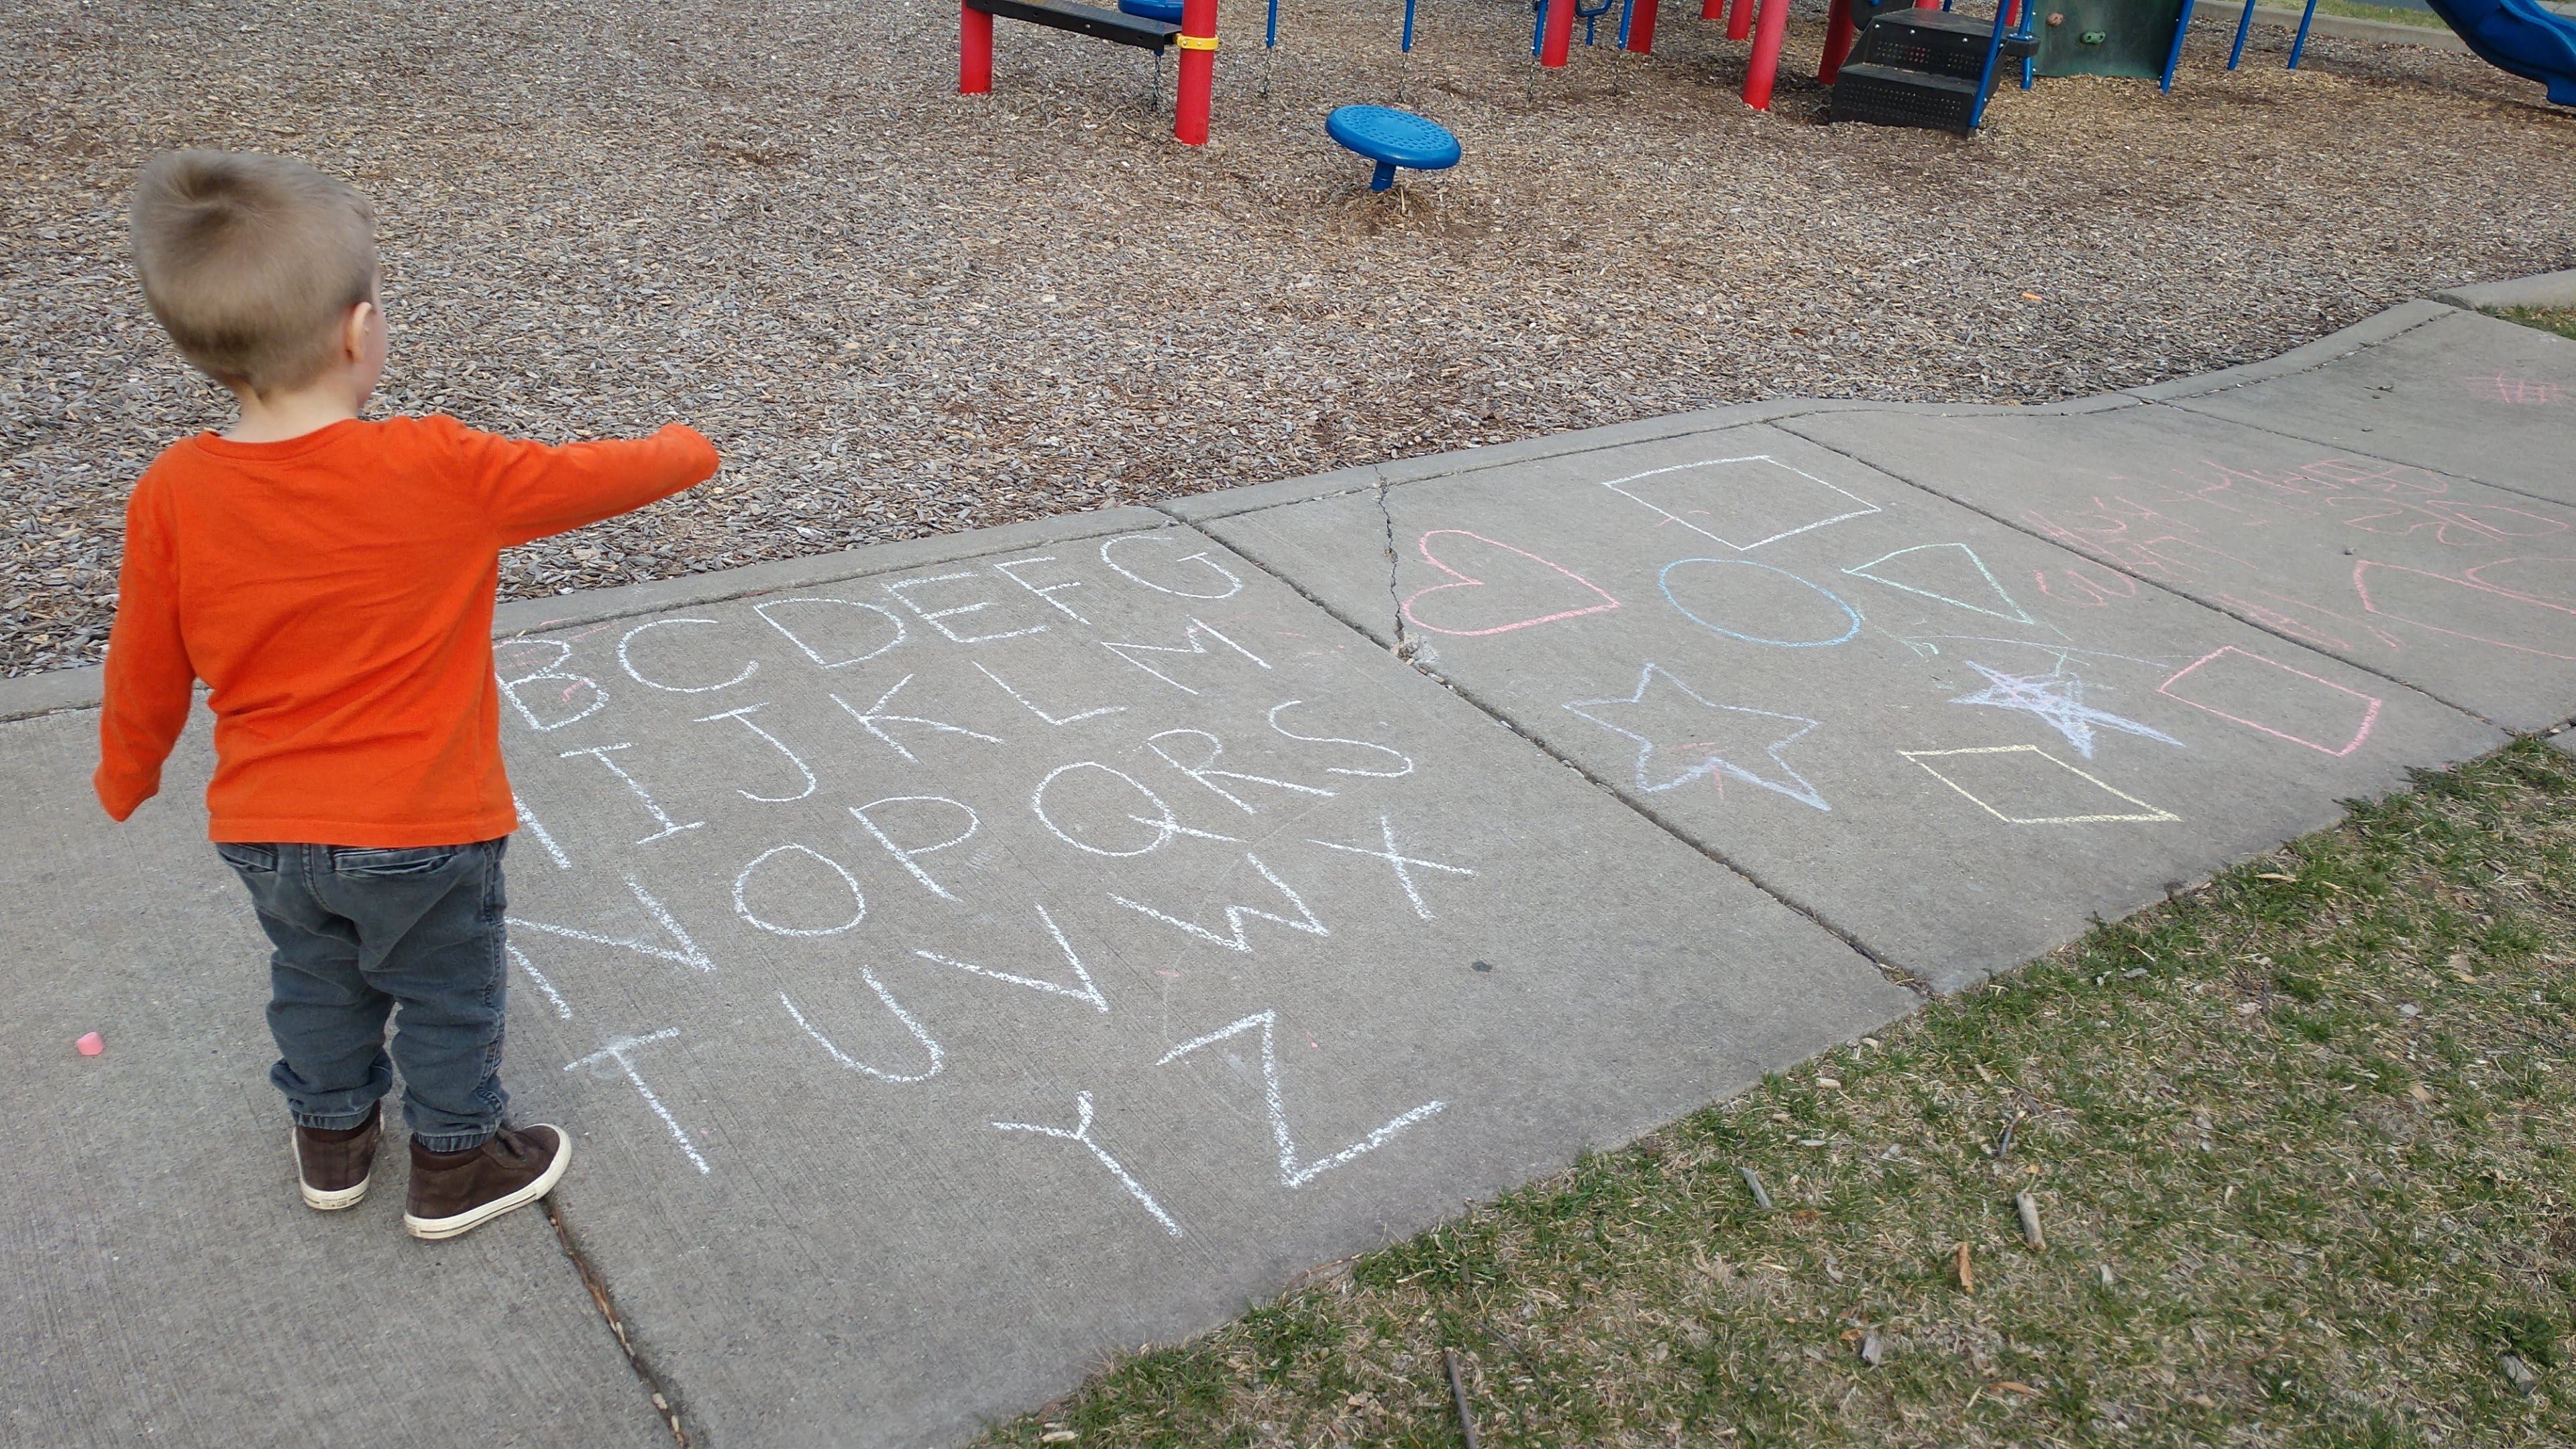 B C D E F G
I J K L M
N O P Q R S
T U V W X
Y Z